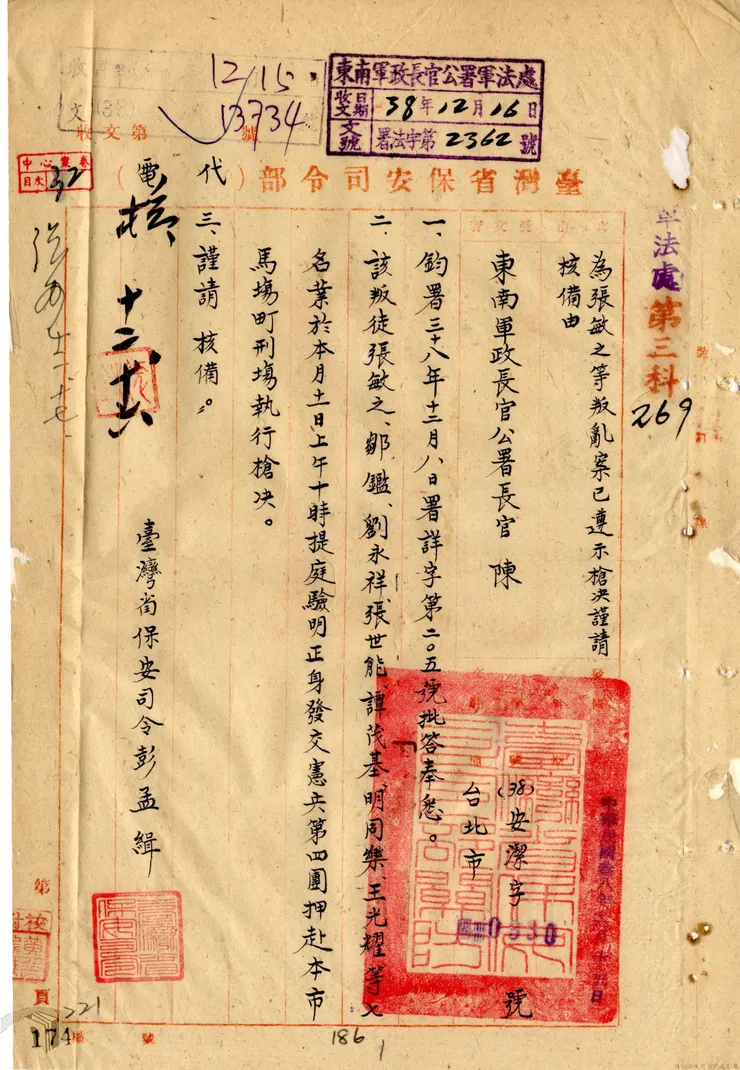 12/15
13734
收
文
(38)
號
第文收
東南軍政長官公署軍法處
收文日期 38年12月16日
文號 署法字第2362號
臺灣省保安司令部(代電)
軍法處第三科
269
為張敏之等叛亂案已遵示槍決謹請
核備由
東南軍政長官公署長官 陳
中華民國卅八年十二月十五日
(38)安潔字 0330 號
台北市
一、鈞署三十八年十二月八日署詳字第二〇五號批答奉悉。
二、該叛徒張敏之、鄒鑑、劉永祥、張世能、譚茂基、明同樂、王光耀等七
名業於本月十一日上午十時提庭驗明正身發交憲兵第四團押赴本市
馬場町刑場執行槍決。
三、謹請 核備。
臺灣省保安司令彭孟緝
十二、十六
第
頁
221
174
186
號